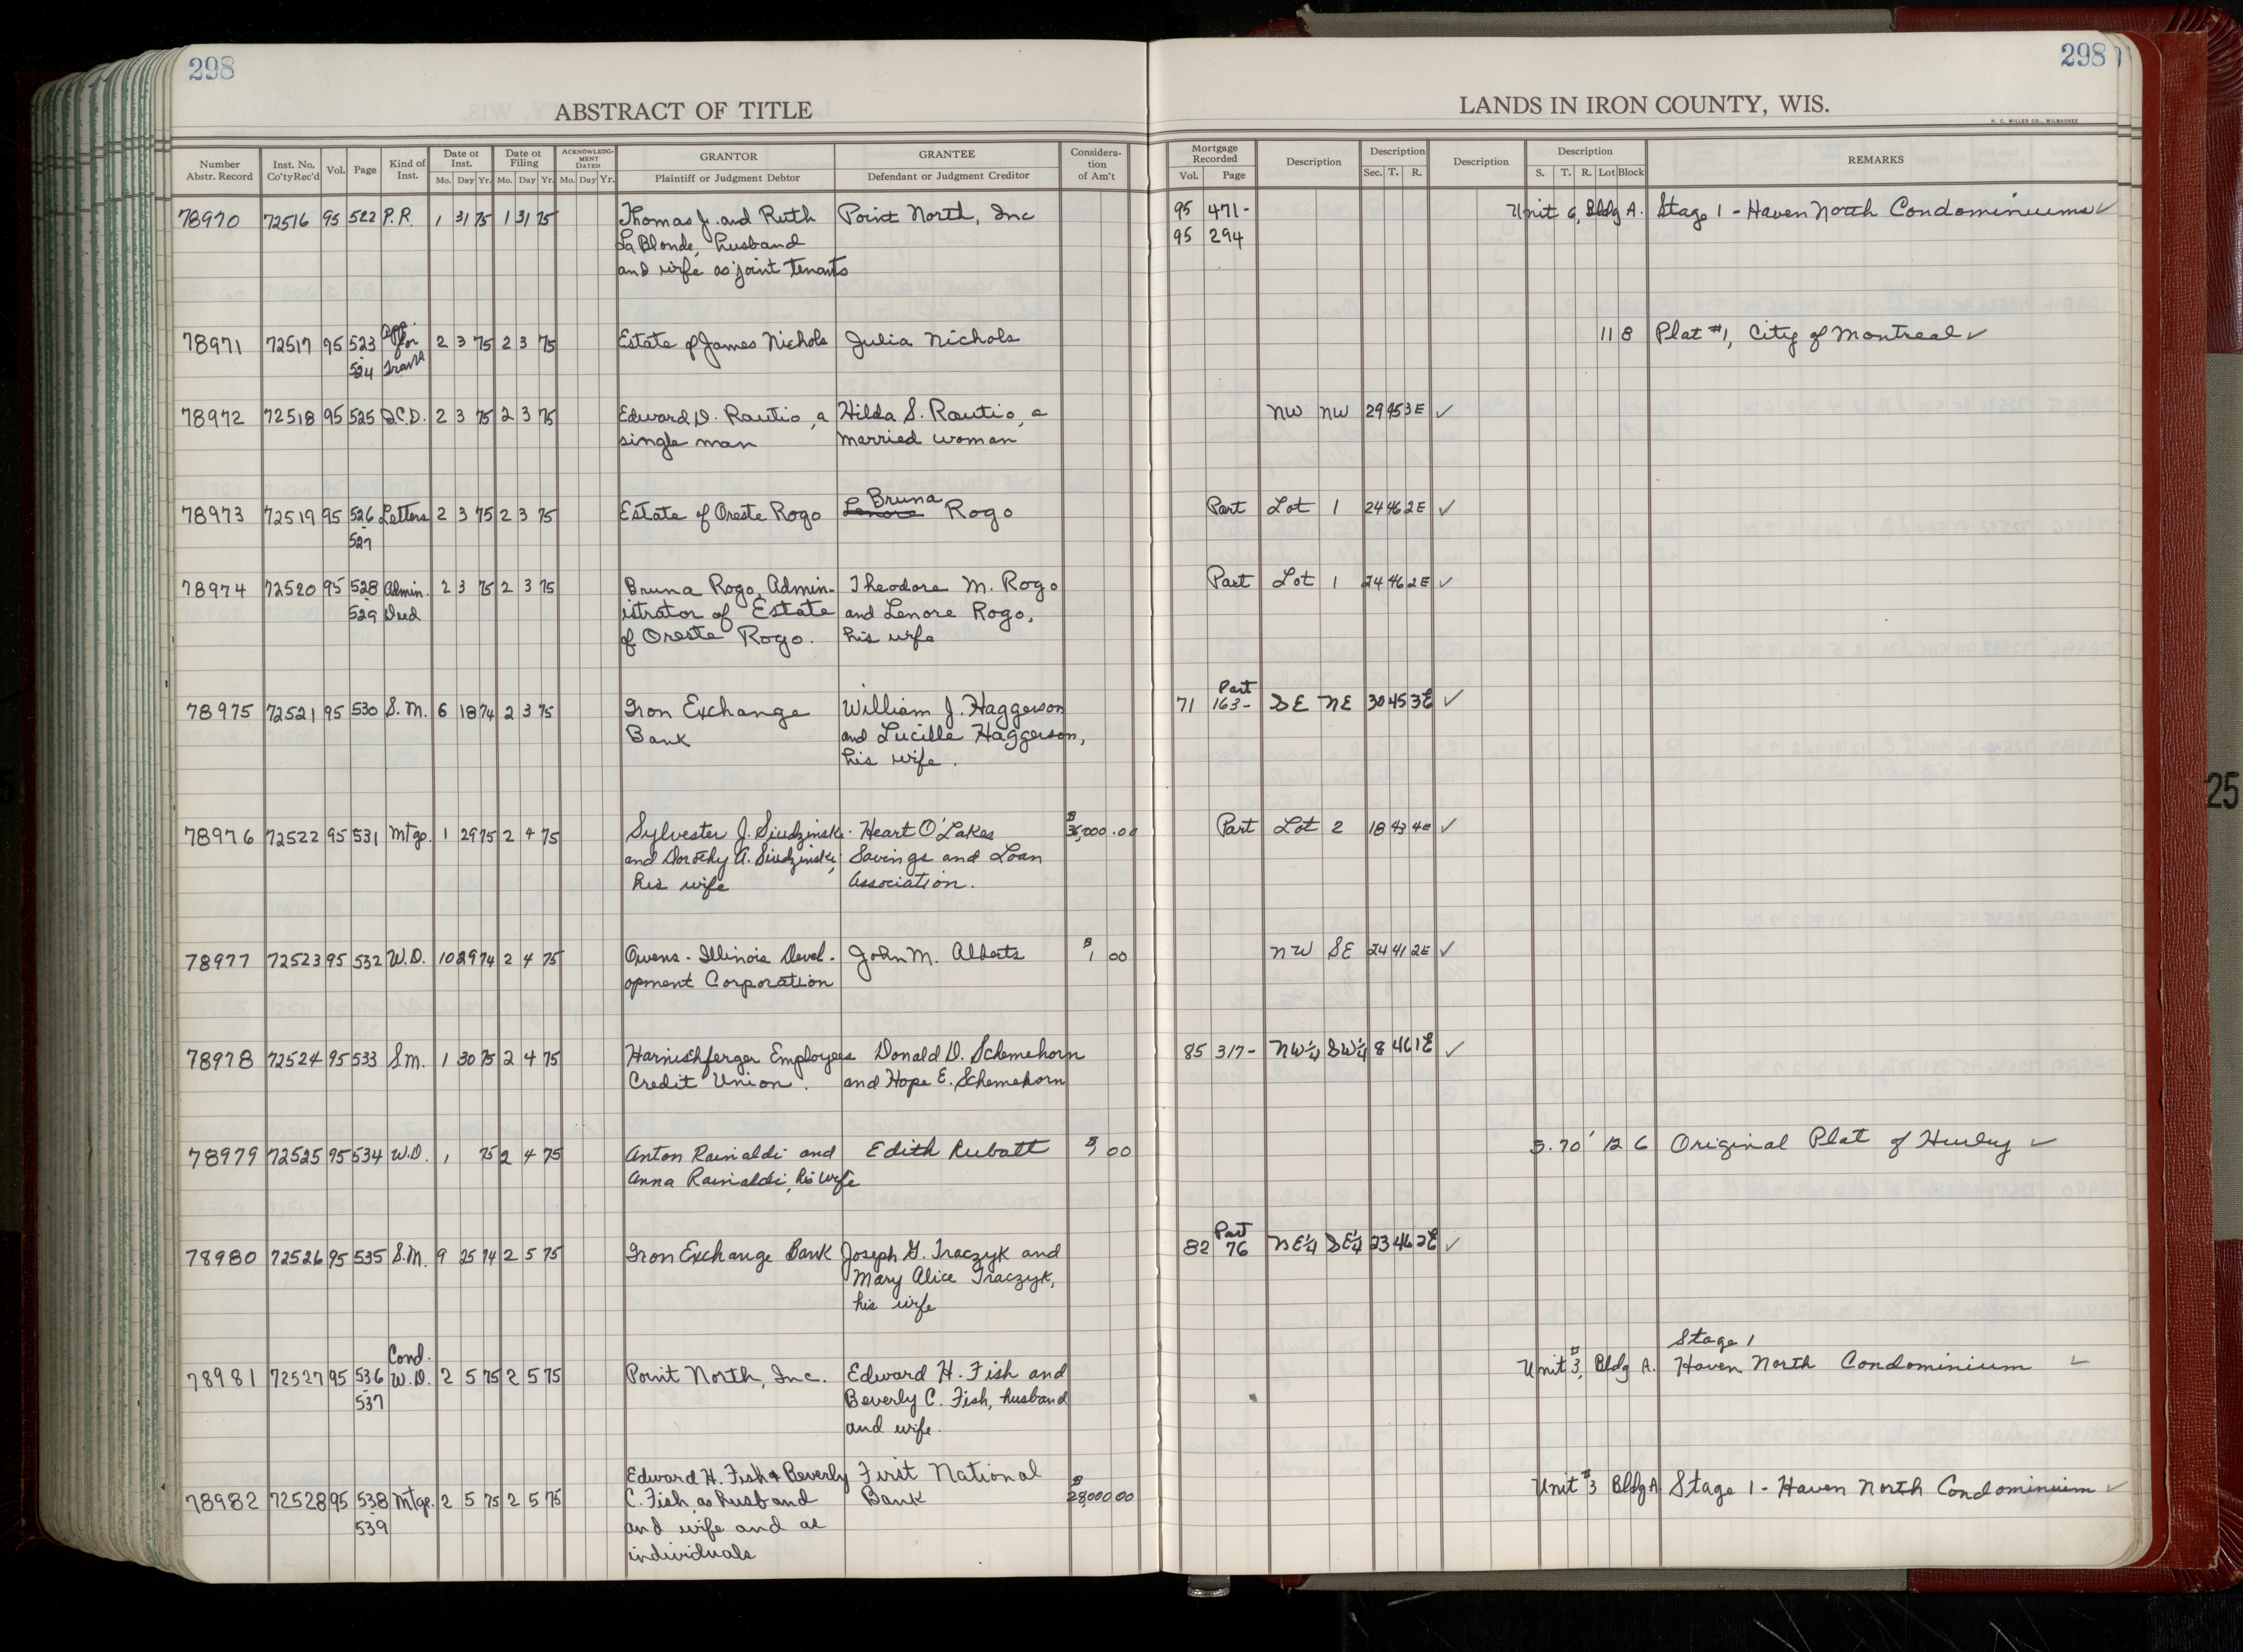 298
298
ABSTRACT OF TITLE
LANDS IN IRON COUNTY, WIS.
H. C. MILLER CO., MILWAUKEE
Number Abstr. Record Inst. No. Co'ty Rec'd Vol. Page Kind of Inst. Date of Inst. Mo. Day Yr. Date of Filing Mo. Day Yr. ACKNOWLEDGMENT DATED Mo. Day Yr. GRANTOR Plaintiff or Judgment Debtor GRANTEE Defendant or Judgment Creditor Consideration of Am't Mortgage Recorded Vol. Page Description Description Sec. T. R. Description Description S. T. R. Lot Block REMARKS
78970 72516 95 522 P.R. 1 31 75 1 31 75 Thomas J. and Ruth Point North, Inc 95 471- Unit 6, Bldg A. Stage 1 - Haven North Condominiums ✓
La Blonde, husband 95 294
and wife as joint tenants
78971 72517 95 523 2 3 75 2 3 75 Estate of James Nichols Julia Nichols 11 8 Plat #1, City of Montreal ✓
524
78972 72518 95 525 Q.C.D. 2 3 75 2 3 75 Edward D. Rautio, a Hilda S. Rautio, a NW NW 29 45 3E ✓
single man married woman
Bruna
78973 72519 95 526 Letters 2 3 75 2 3 75 Estate of Oreste Rogo Lenore Rogo Part Lot 1 24 46 2E ✓
527
78974 72520 95 528 Admin. 2 3 75 2 3 75 Bruna Rogo, Admin- Theodore M. Rogo Part Lot 1 24 46 2E ✓
529 Deed istrator of Estate and Lenore Rogo,
of Oreste Rogo. his wife
Part
78975 72521 95 530 S.M. 6 18 74 2 3 75 Iron Exchange William J. Haggerson 71 163- SE NE 30 45 3E ✓
Bank and Lucille Haggerson,
his wife.
78976 72522 95 531 Mtge. 1 29 75 2 4 75 Sylvester J. Siudzinski Heart O'Lakes $36,000.00 Part Lot 2 18 43 4E ✓
and Dorothy A. Siudzinski, Savings and Loan
his wife Association.
78977 72523 95 532 W.D. 10 29 74 2 4 75 Owens-Illinois Devel- John M. Alberts $1 00 NW SE 24 41 2E ✓
opment Corporation
78978 72524 95 533 S.M. 1 30 75 2 4 75 Harnischferger Employees Donald D. Schemehorn 85 317- NW¼ SW¼ 8 46 1E ✓
Credit Union. and Hope E. Schemehorn
78979 72525 95 534 W.D. 1 75 2 4 75 Anton Rainaldi and Edith Rubatt 00 S.70' 12 6 Original Plat of Hurley ✓
Anna Rainaldi, his wife
Part
78980 72526 95 535 S.M. 9 25 74 2 5 75 Iron Exchange Bank Joseph G. Traczyk and 82 76 SE¼ 23 46 2E ✓
Mary Alice Traczyk,
his wife
Cond. Stage 1
78981 72527 95 536 W.D. 2 5 75 2 5 75 Point North, Inc. Edward H. Fish and Unit #3, Bldg A. Haven North Condominium ✓
537 Beverly C. Fish, husband
and wife.
Edward H. Fish & Beverly First National
78982 72528 95 538 Mtge. 2 5 75 2 5 75 C. Fish as husband Bank $28,000 00 Unit #3 Bldg A Stage 1 - Haven North Condominium ✓
539 and wife and as
individuals
25